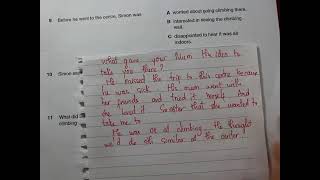 9 Before he went to the centre, Simon was
A worried about going climbing there.
B interested in seeing the climbing wall.
C disappointed to hear it was all indoors.
10 Simon
11 What did
climbing
What gave your Mum the idea to
take you there?
He missed the trip to this centre because
he was sick. His mum went with
her friends and tried it herself. And
she loved it So after that she wanted to
take me to
He was ok at climbing. He thought
we'd do sth similar at the center...